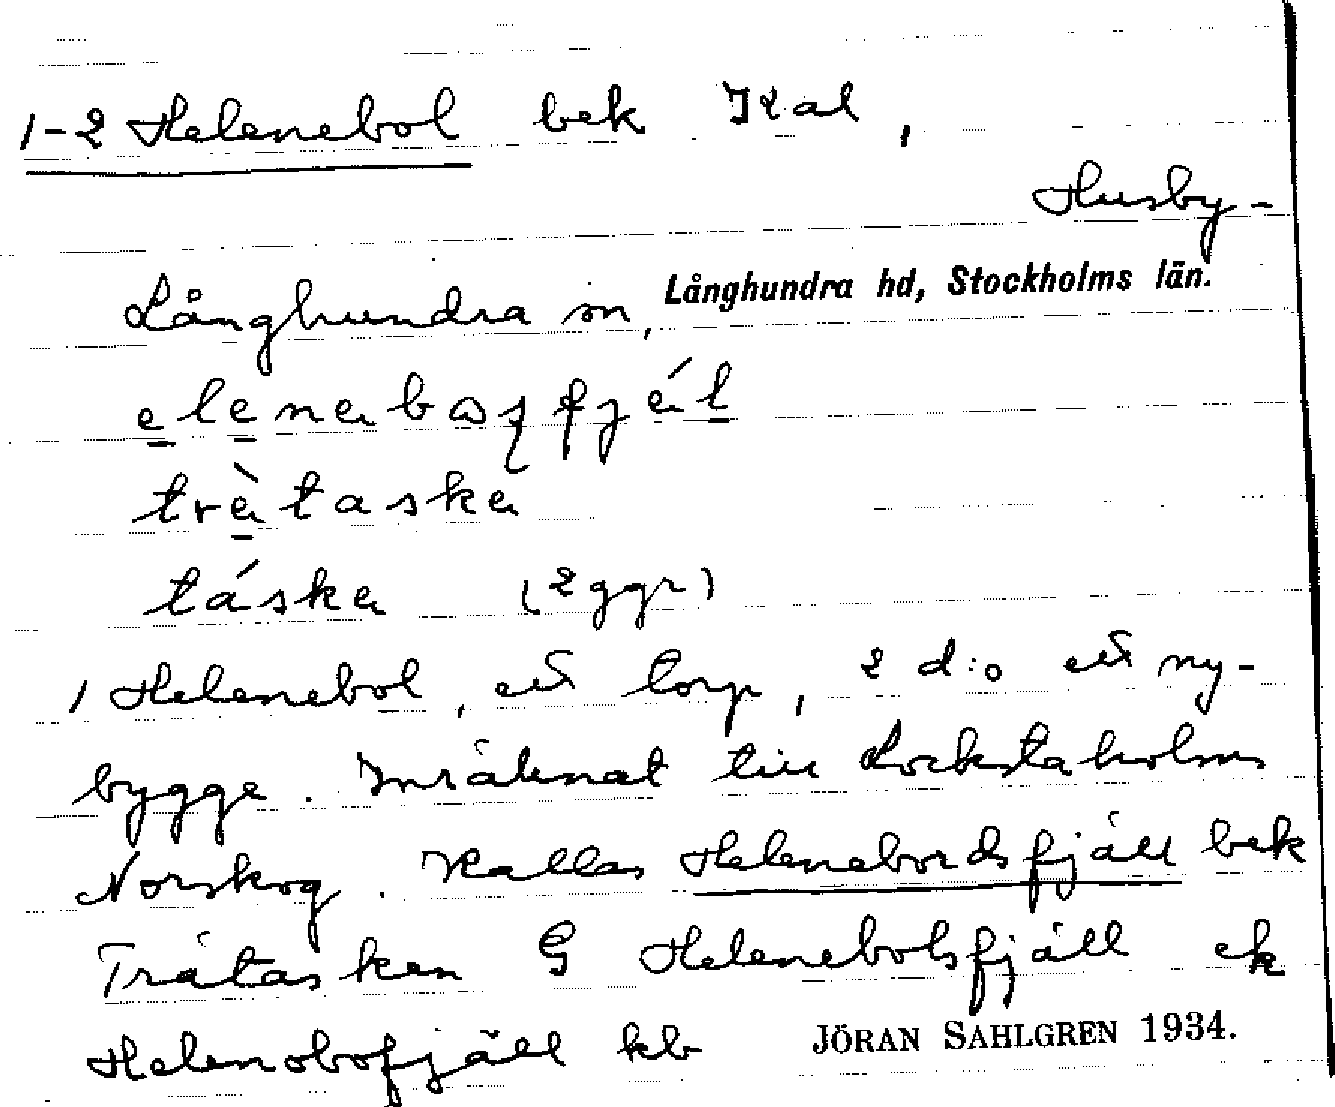 1-2 Helenebol bek Kal,
Husby-
Långhundra sn, Långhundra hd, Stockholms län.
elenabɷʂfjä́l
trä̀taskа
táska (2 ggr)
1 Helenebol, ett torp, 2 d:o ett ny-
bygge. Inräknat till Lockstaholms
Norskog. Kallas Helenebordsfjäll bek
Trätasken G Helenebolsfjäll ek
Helenobofjäll kb
JÖRAN SAHLGREN 1934.